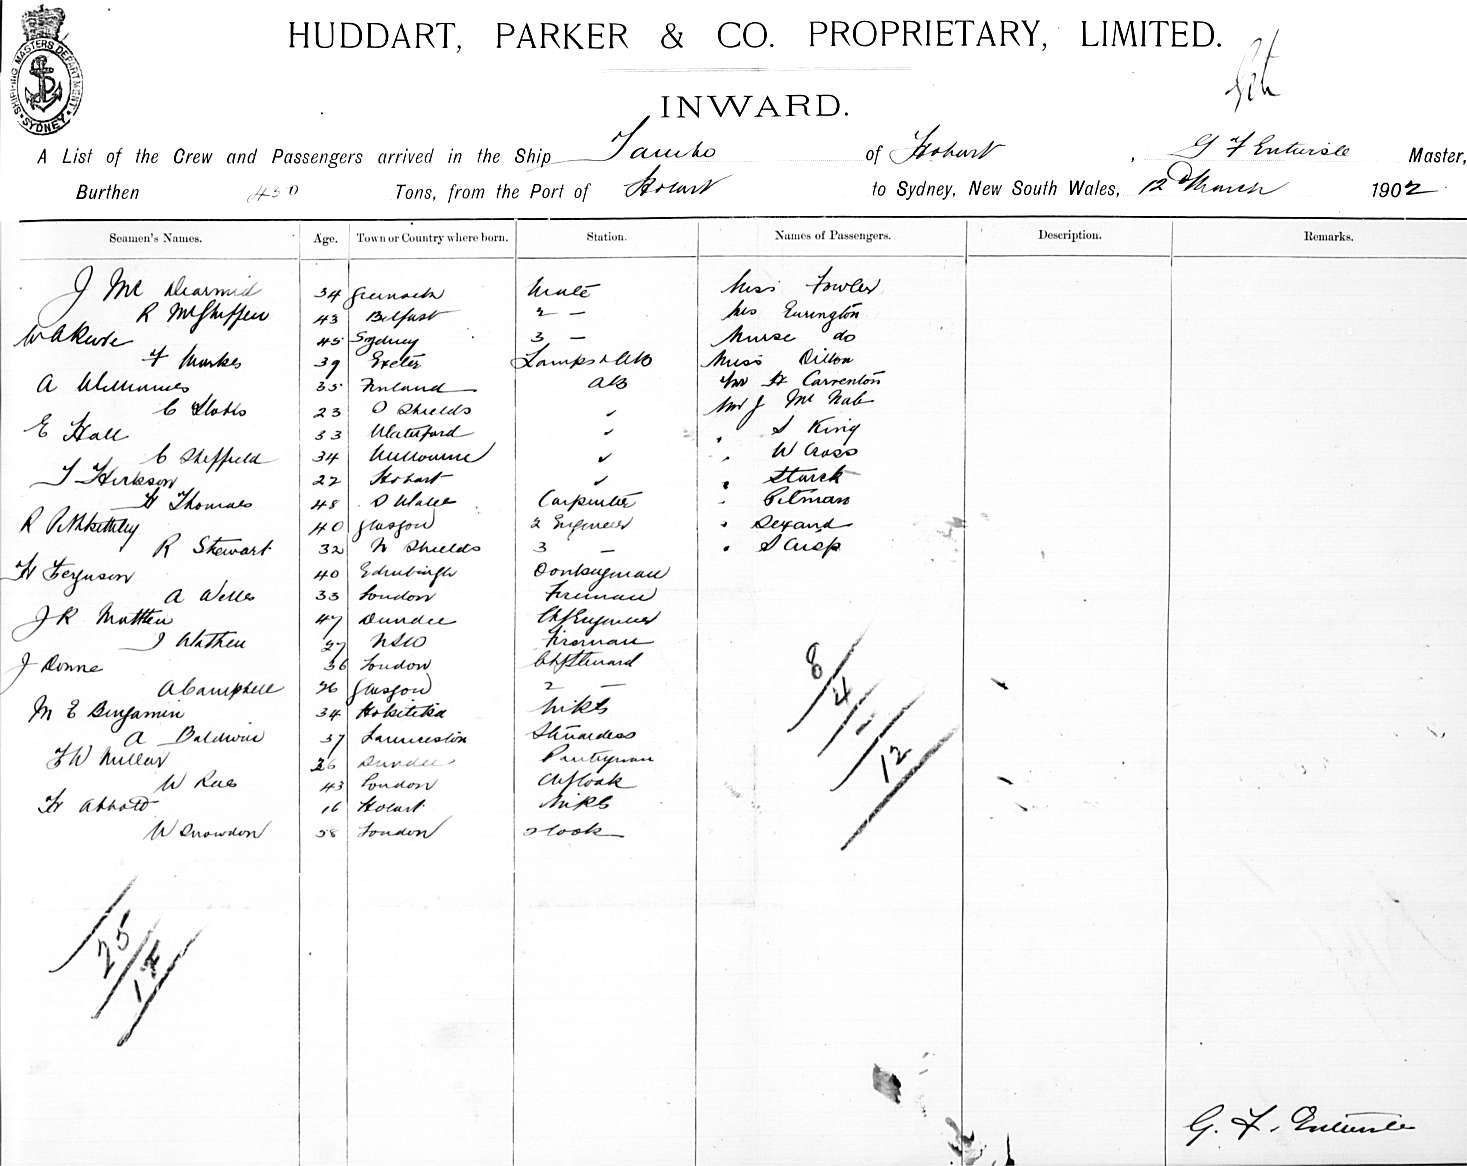 HUDDART, PARKER & CO. PROPRIETARY, LIMITED.
SHIPPING MASTERS DEPARTMENT
SYDNEY
INWARD.
A List of the Crew and Passengers arrived in the Ship Tambo of Hobart, G F Entwisle Master,
Burthen 450 Tons, from the Port of Hobart to Sydney, New South Wales, 12th March 1902
Seamen's Names. Age. Town or Country where born. Station. Names of Passengers. Description. Remarks.
J Mc Dearmid 34 Greenock Mate Miss Fowler
R 43 Belfast 2 — Mrs Eurington
45 Sydney 3 — Nurse do
F Marks 39 Exeter Lamps & AB Miss Dillon
A Williames 35 Finland AB Mr H Carrenton
C 23 S Shields ✓ Mr J Mc Nab
E Hall 33 Waterford ✓ " S King
C Sheffield 34 Melbourne ✓ " W Cross
T Hirkson 22 Hobart ✓ " Starck
H Thomas 48 S Wales Carpenter " Pitman
R Pitkethley 40 Glasgow 2 Engineer "
R Stewart 32 N Shields 3 — " S Crisp
H Ferguson 40 Edinburgh Donkeyman
A Wells 33 London Fireman
J R Matthew 47 Dundee Chf Engineer
J Wathen 27 NSW Fireman
J Donne 36 London Chf Steward
A Campbell 26 Glasgow 2 —
M E Benjamin 34 Hokitika
A Baldwin 37 Launceston Stewardess
F W Millar 26 Dundee Pantryman
W Rees 43 London Chf Cook
H Abbott 16 Hobart
W Snowdon 58 London 2 Cook
8
4
12
25
17
G. F. Entwisle